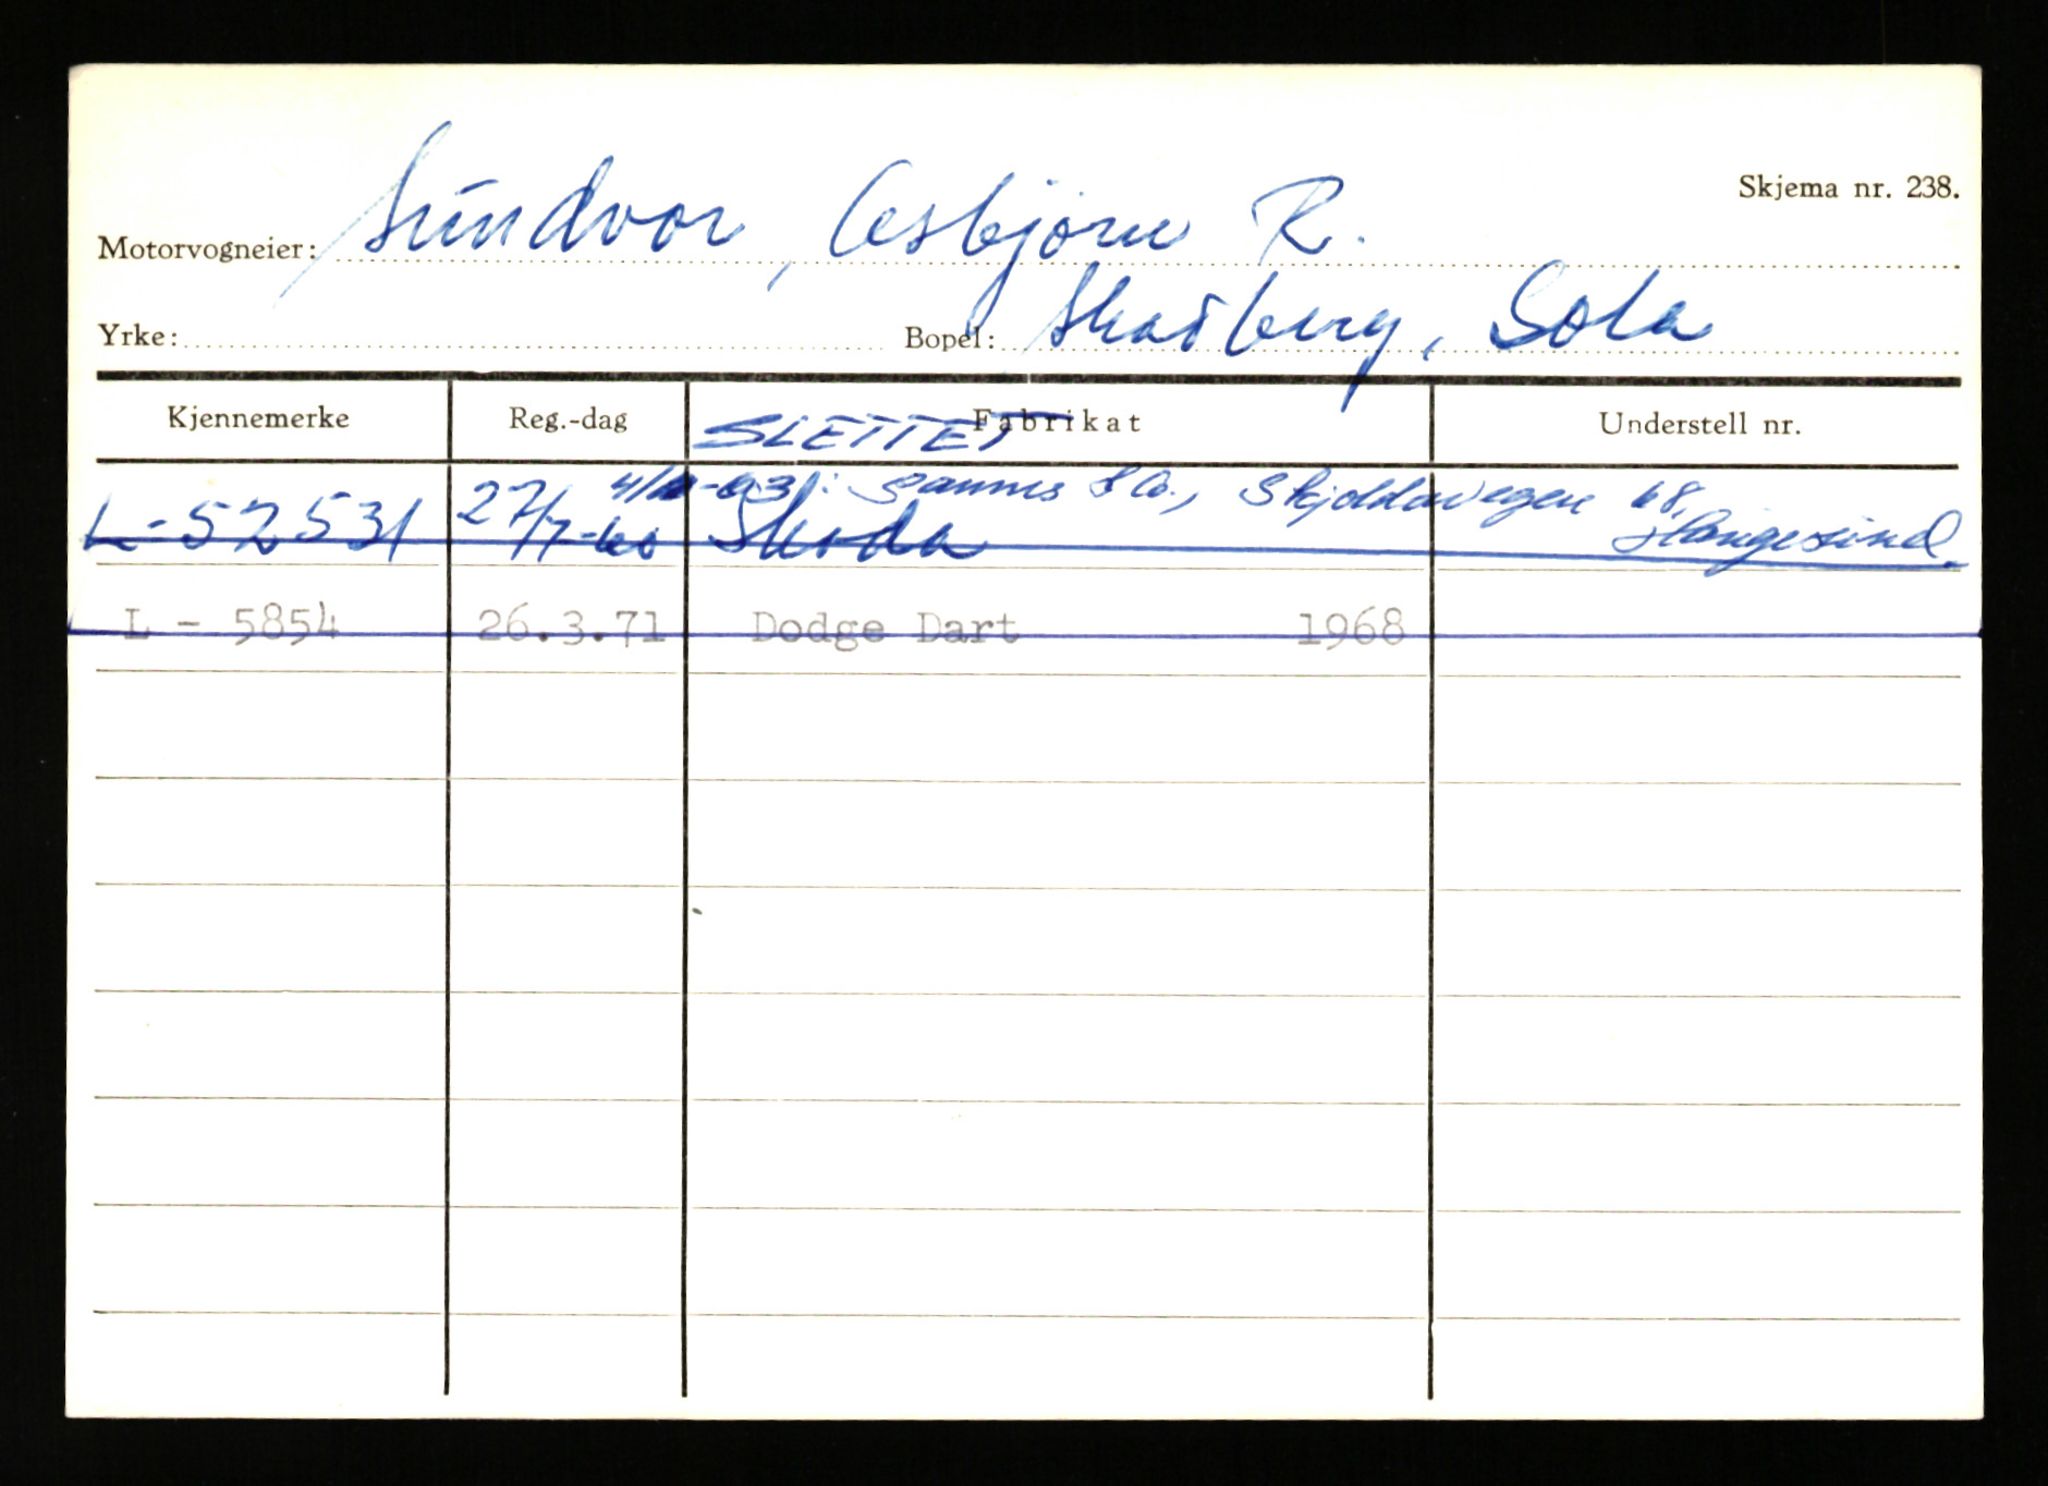 Skjema nr. 238.
Motorvogneier: Sundvor, Asbjörn R.
Yrke: Bopel: Skadberg, Sola
Kjennemerke Reg.-dag Fabrikat Understell nr.
SLETTET
4/10-63: Sannes & Co., Skjoldavegen 68, Haugesund.
L-52531 27/7-60 Skoda
L - 5854 26.3.71 Dodge Dart 1968